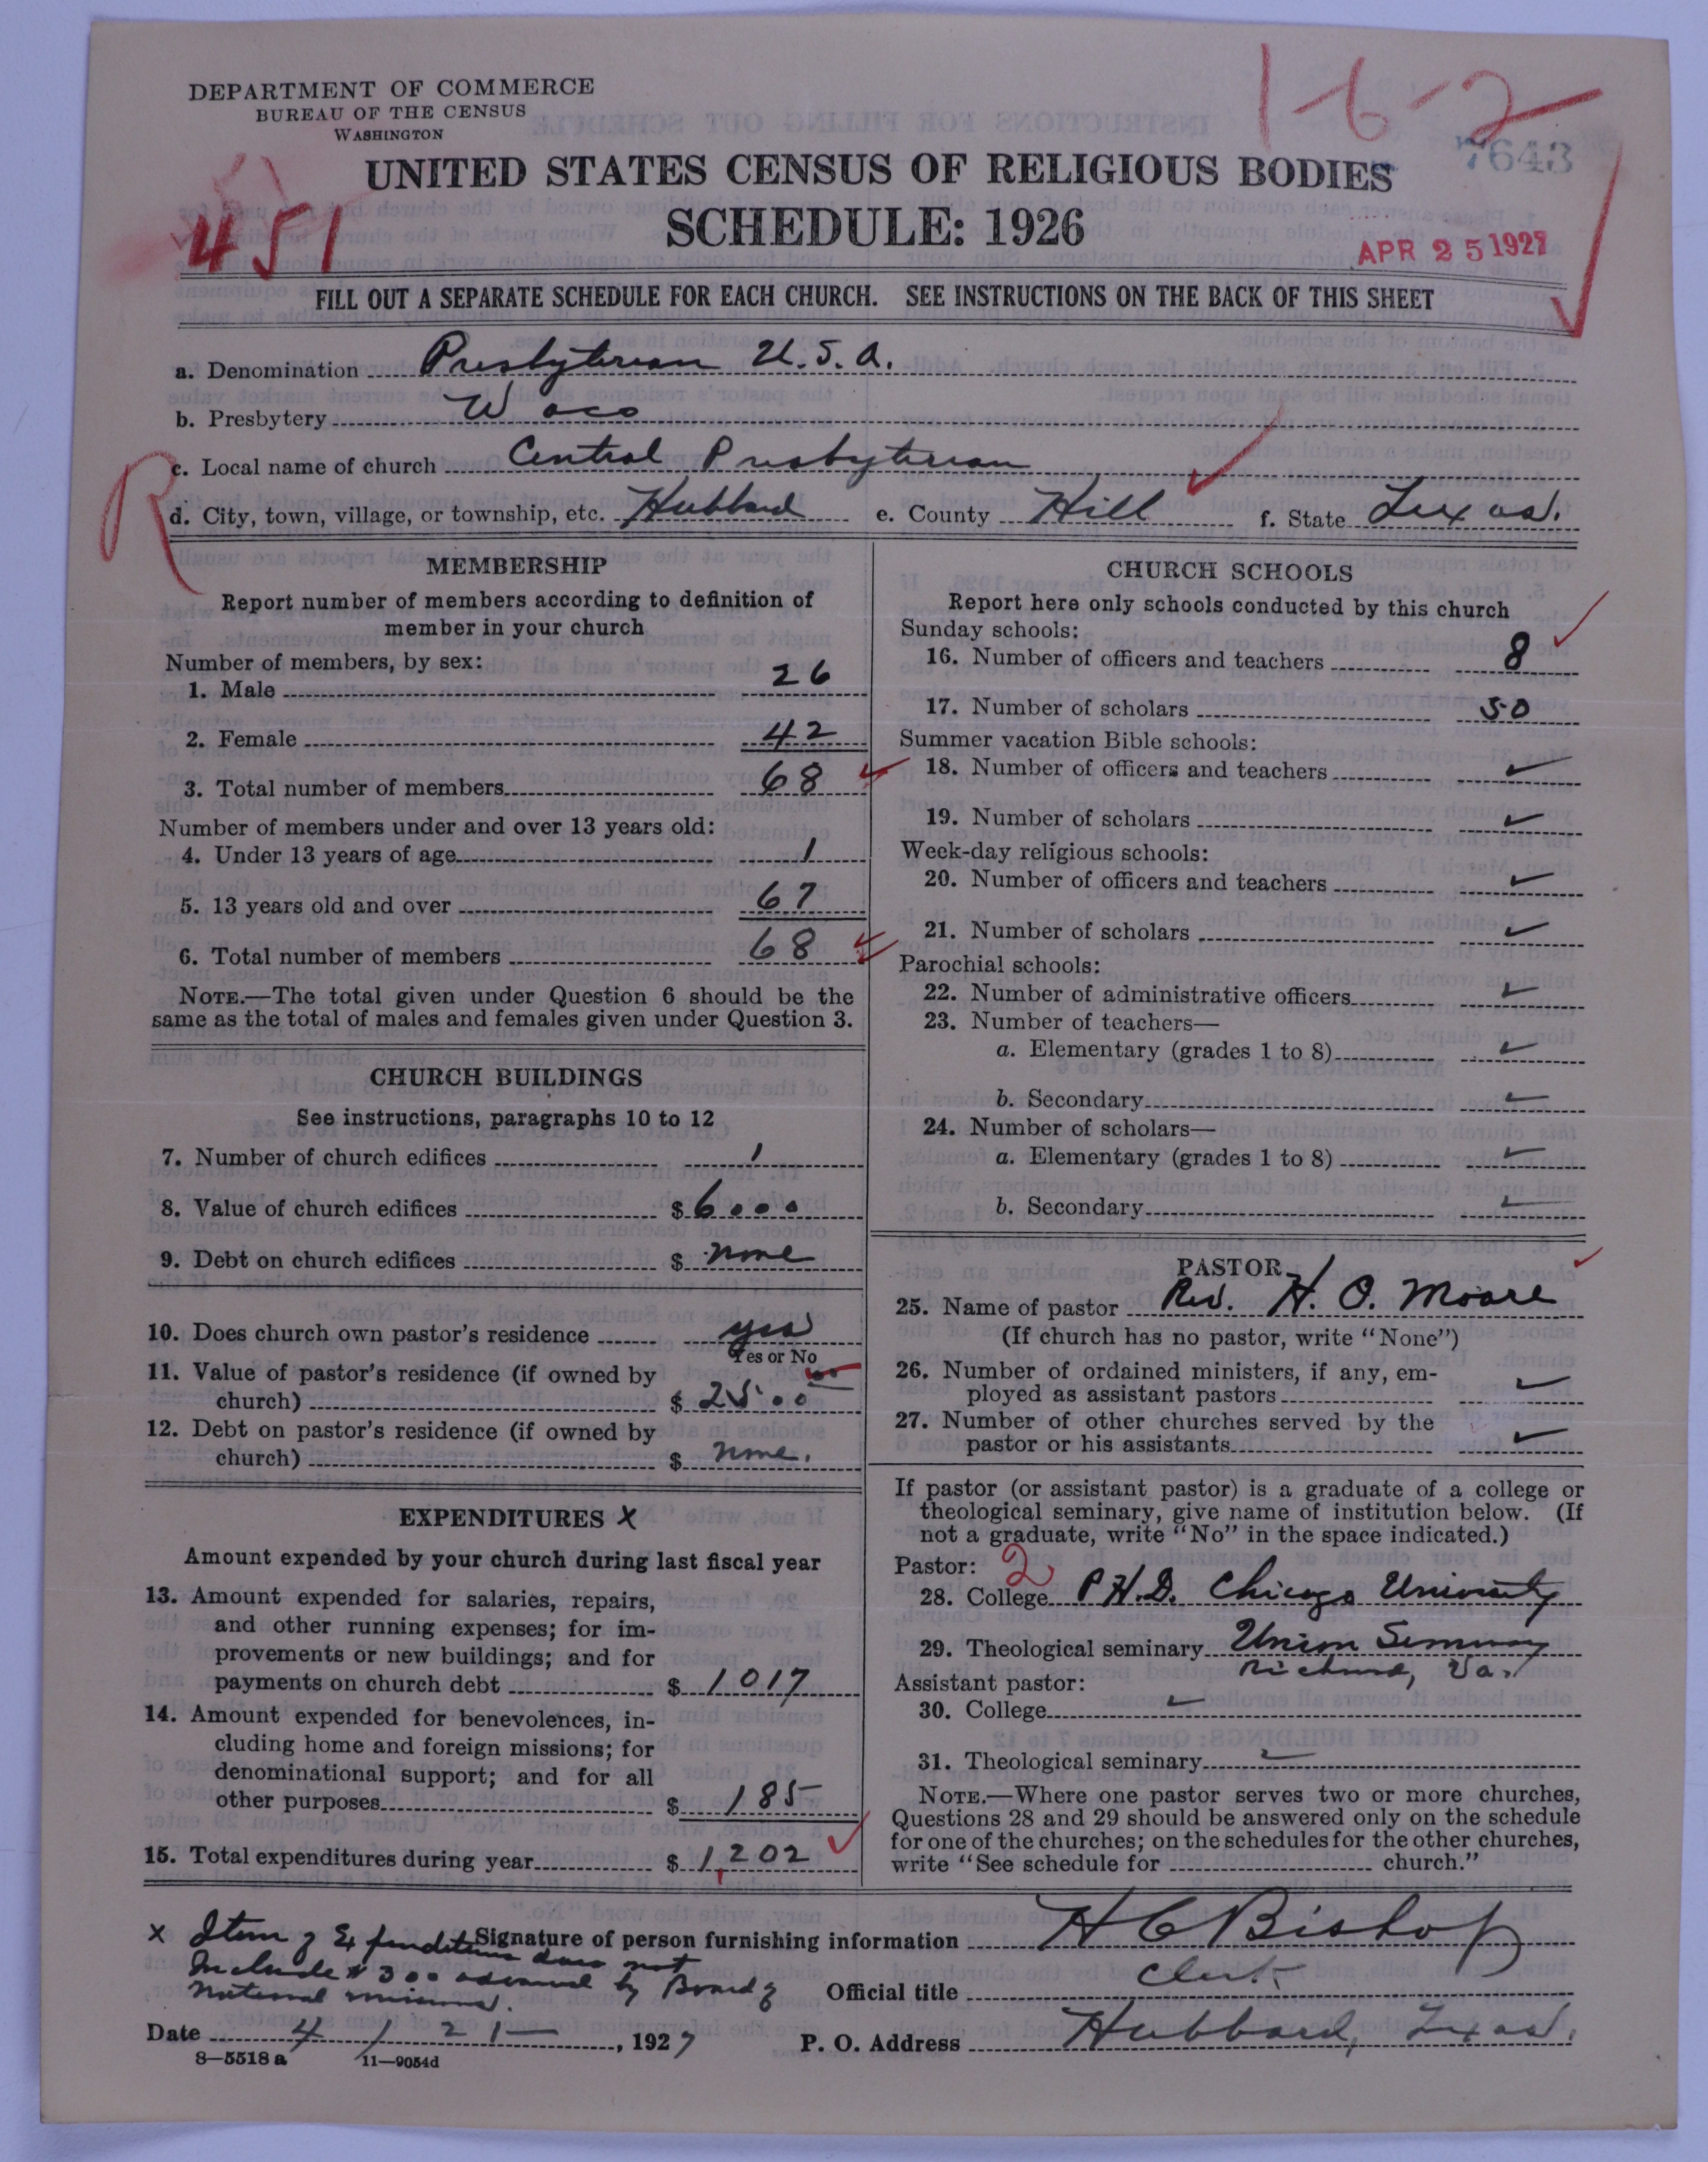 DEPARTMENT OF COMMERCE
BUREAU OF THE CENSUS
WASHINGTON
1-6-2
7643
UNITED STATES CENSUS OF RELIGIOUS BODIES
SCHEDULE: 1926
451
APR 25 1927
FILL OUT A SEPARATE SCHEDULE FOR EACH CHURCH. SEE INSTRUCTIONS ON THE BACK OF THIS SHEET
a. Denomination Presbyterian U.S.A.
b. Presbytery Waco
c. Local name of church Central Presbyterian
R
d. City, town, village, or township, etc. Hubbard e. County Hill f. State Texas.
MEMBERSHIP
Report number of members according to definition of
member in your church
Number of members, by sex:
1. Male 26
2. Female 42
3. Total number of members 68
Number of members under and over 13 years old:
4. Under 13 years of age 1
5. 13 years old and over 67
6. Total number of members 68
NOTE.—The total given under Question 6 should be the
same as the total of males and females given under Question 3.
CHURCH BUILDINGS
See instructions, paragraphs 10 to 12
7. Number of church edifices 1
8. Value of church edifices $ 6000
9. Debt on church edifices $ none
10. Does church own pastor's residence yes
Yes or No
11. Value of pastor's residence (if owned by
church) $ 2500
12. Debt on pastor's residence (if owned by
church) $ none.
EXPENDITURES X
Amount expended by your church during last fiscal year
13. Amount expended for salaries, repairs,
and other running expenses; for im-
provements or new buildings; and for
payments on church debt $ 1017
14. Amount expended for benevolences, in-
cluding home and foreign missions; for
denominational support; and for all
other purposes $ 185
15. Total expenditures during year $ 1,202
CHURCH SCHOOLS
Report here only schools conducted by this church
Sunday schools:
16. Number of officers and teachers 8
17. Number of scholars 50
Summer vacation Bible schools:
18. Number of officers and teachers ✓
19. Number of scholars ✓
Week-day religious schools:
20. Number of officers and teachers ✓
21. Number of scholars ✓
Parochial schools:
22. Number of administrative officers ✓
23. Number of teachers—
a. Elementary (grades 1 to 8) ✓
b. Secondary ✓
24. Number of scholars—
a. Elementary (grades 1 to 8) ✓
b. Secondary ✓
PASTOR
25. Name of pastor Rev. H. O. Moore
(If church has no pastor, write "None")
26. Number of ordained ministers, if any, em-
ployed as assistant pastors ✓
27. Number of other churches served by the
pastor or his assistants ✓
If pastor (or assistant pastor) is a graduate of a college or
theological seminary, give name of institution below. (If
not a graduate, write "No" in the space indicated.)
Pastor: 2
28. College P.H.D. Chicago University
29. Theological seminary Union Seminary
Richmd, Va.
Assistant pastor:
30. College ✓
31. Theological seminary ✓
NOTE.—Where one pastor serves two or more churches,
Questions 28 and 29 should be answered only on the schedule
for one of the churches; on the schedules for the other churches,
write "See schedule for church."
X Item of Expenditures does not
Include $300 advanced by Board of
National missions.
Signature of person furnishing information H C Bishop
Official title Clerk
Date 4/21, 1927 P. O. Address Hubbard, Texas.
8—5518 a 11—9054d